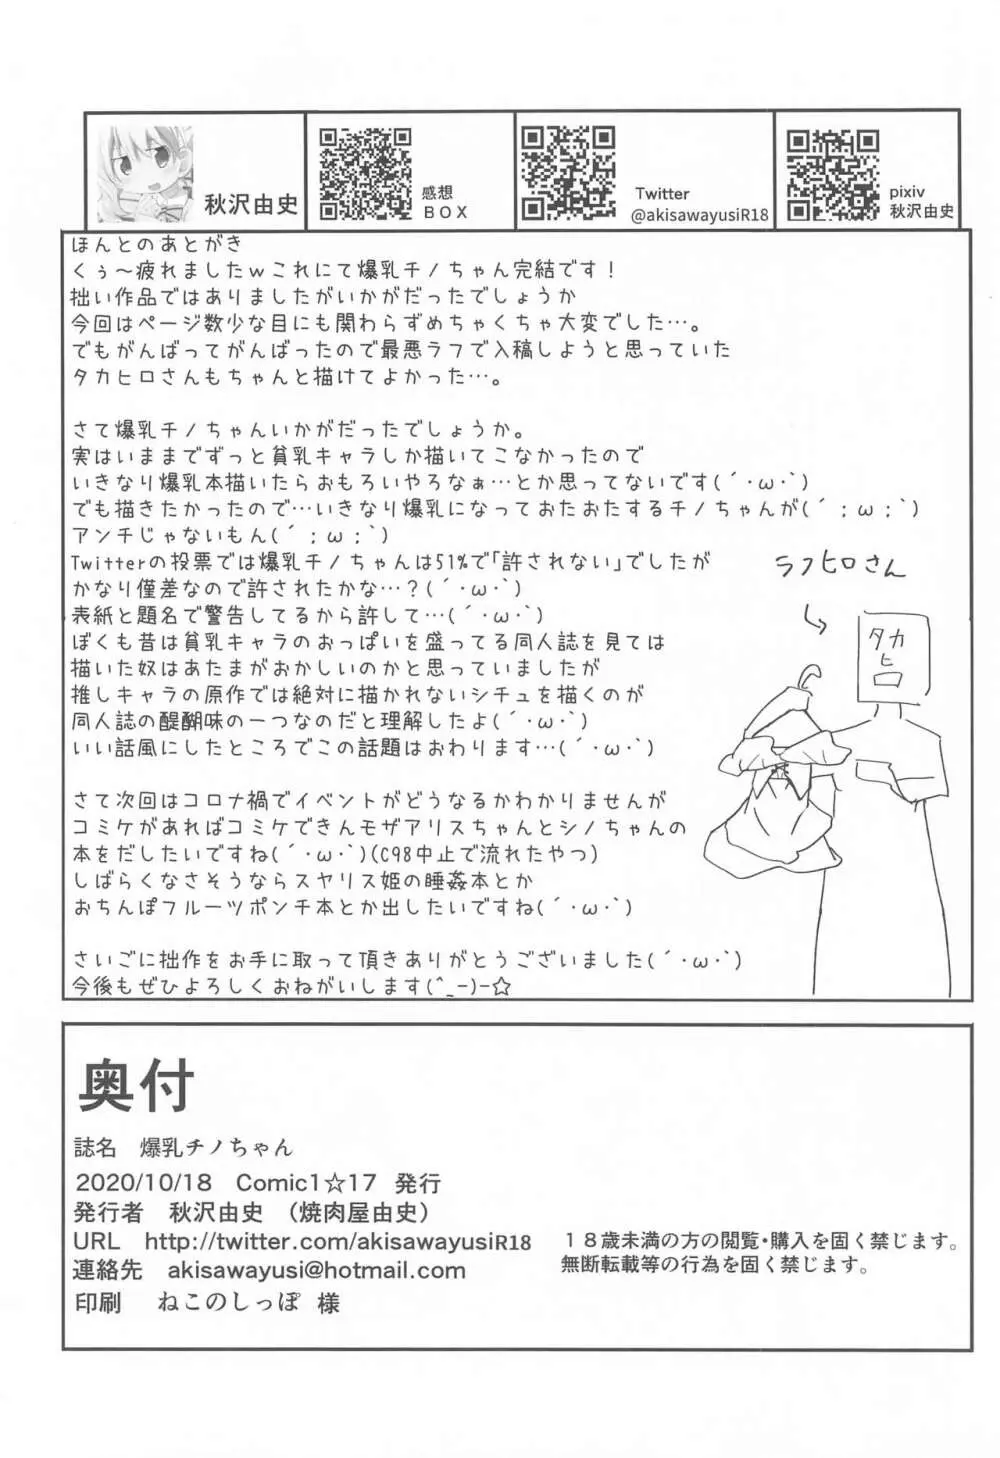 秋沢由史
感想
BOX
Twitter
@akisawayusiR18
pixiv
秋沢由史
ほんとのあとがき
くぅ～疲れましたｗこれにて爆乳チノちゃん完結です！
拙い作品ではありましたがいかがだったでしょうか
今回はページ数少な目にも関わらずめちゃくちゃ大変でした…。
でもがんばってがんばったので最悪ラフで入稿しようと思っていた
タカヒロさんもちゃんと描けてよかった…。
さて爆乳チノちゃんいかがだったでしょうか。
実はいままでずっと貧乳キャラしか描いてこなかったので
いきなり爆乳本描いたらおもろいやろなぁ…とか思ってないです(´･ω･`)
でも描きたかったので…いきなり爆乳になっておたおたするチノちゃんが(´；ω；`)
アンチじゃないもん(´；ω；`)
Twitterの投票では爆乳チノちゃんは51%で「許されない」でしたが
かなり僅差なので許されたかな…？(´･ω･`)
表紙と題名で警告してるから許して…(´･ω･`)
ぼくも昔は貧乳キャラのおっぱいを盛ってる同人誌を見ては
描いた奴はあたまがおかしいのかと思っていましたが
推しキャラの原作では絶対に描かれないシチュを描くのが
同人誌の醍醐味の一つなのだと理解したよ(´･ω･`)
いい話風にしたところでこの話題はおわります…(´･ω･`)
さて次回はコロナ禍でイベントがどうなるかわかりませんが
コミケがあればコミケできんモザアリスちゃんとシノちゃんの
本をだしたいですね(´･ω･`)(C98中止で流れたやつ)
しばらくなさそうならスヤリス姫の睡姦本とか
おちんぽフルーツポンチ本とか出したいですね(´･ω･`)
さいごに拙作をお手に取って頂きありがとうございました(´･ω･`)
今後もぜひよろしくおねがいします(^_-)-☆
ラフヒロさん
タカ
ヒロ
奥付
誌名　爆乳チノちゃん
2020/10/18　Comic1☆17　発行
発行者　秋沢由史　（焼肉屋由史）
URL　http://twitter.com/akisawayusiR18
連絡先　akisawayusi@hotmail.com
印刷　ねこのしっぽ 様
１８歳未満の方の閲覧・購入を固く禁じます。
無断転載等の行為を固く禁じます。